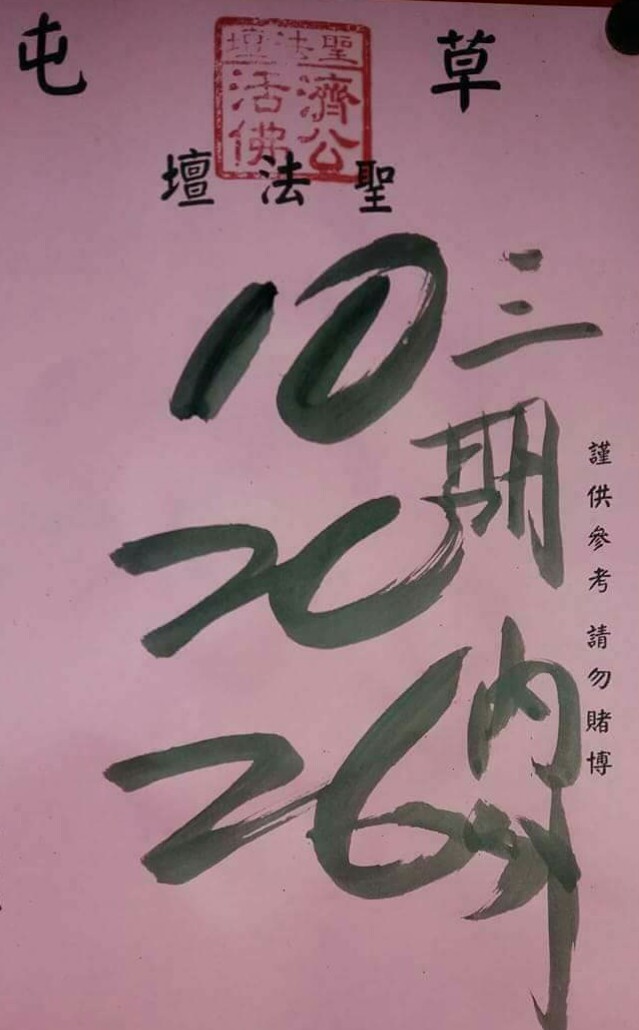 草屯
聖法壇
濟公
活佛
聖法壇
謹供參考 請勿賭博
三期內外
10
20
26